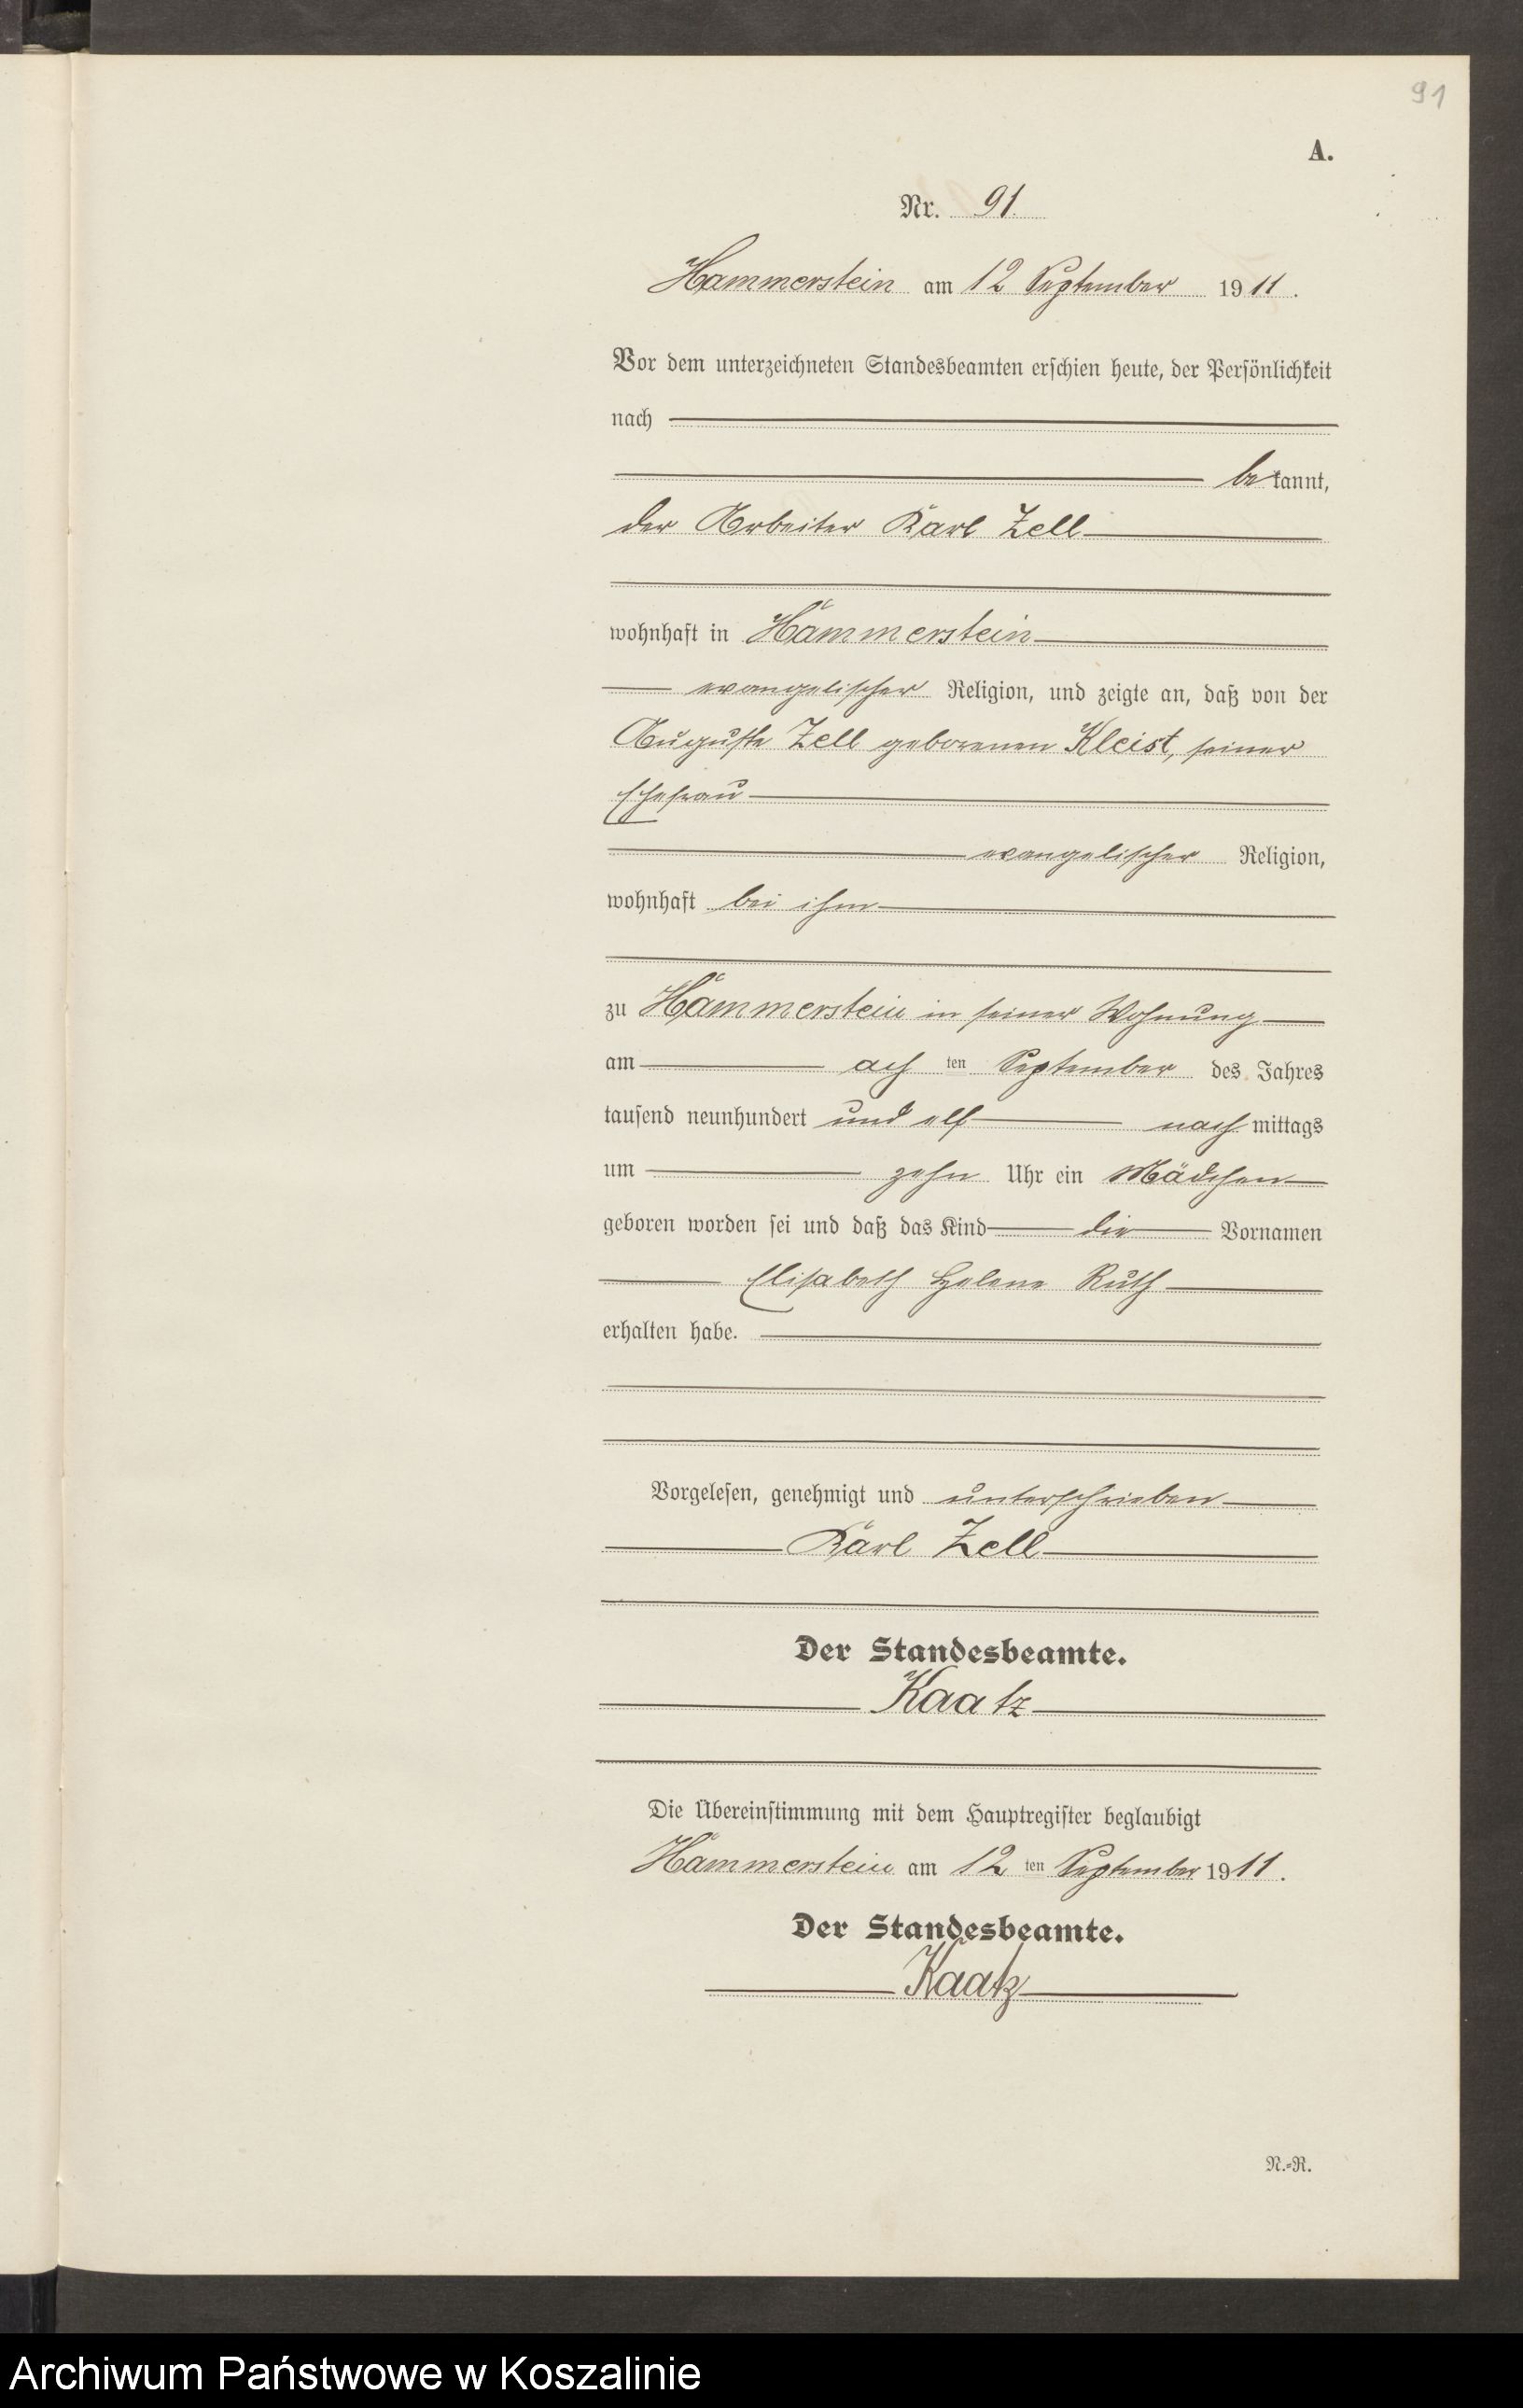 91
A.
Nr. 91.
Hammerstein am 12 September 1911.
Vor dem unterzeichneten Standesbeamten erschien heute, der Persönlichkeit
nach
bekannt,
der Arbeiter Karl Zell
wohnhaft in Hammerstein
evangelischer Religion, und zeigte an, daß von der
Auguste Zell geborenen Kleist, seiner
Ehefrau
evangelischer Religion,
wohnhaft bei ihm
zu Hammerstein in seiner Wohnung
am achten September des Jahres
tausend neunhundert und elf nachmittags
um zehn Uhr ein Mädchen
geboren worden sei und daß das Kind die Vornamen
Elisabeth Helene Ruth
erhalten habe.
Vorgelesen, genehmigt und unterschrieben
Karl Zell
Der Standesbeamte.
Kaatz
Die Übereinstimmung mit dem Hauptregister beglaubigt
Hammerstein am 12ten September 1911.
Der Standesbeamte.
Kaatz
N.=R.
Archiwum Państwowe w Koszalinie